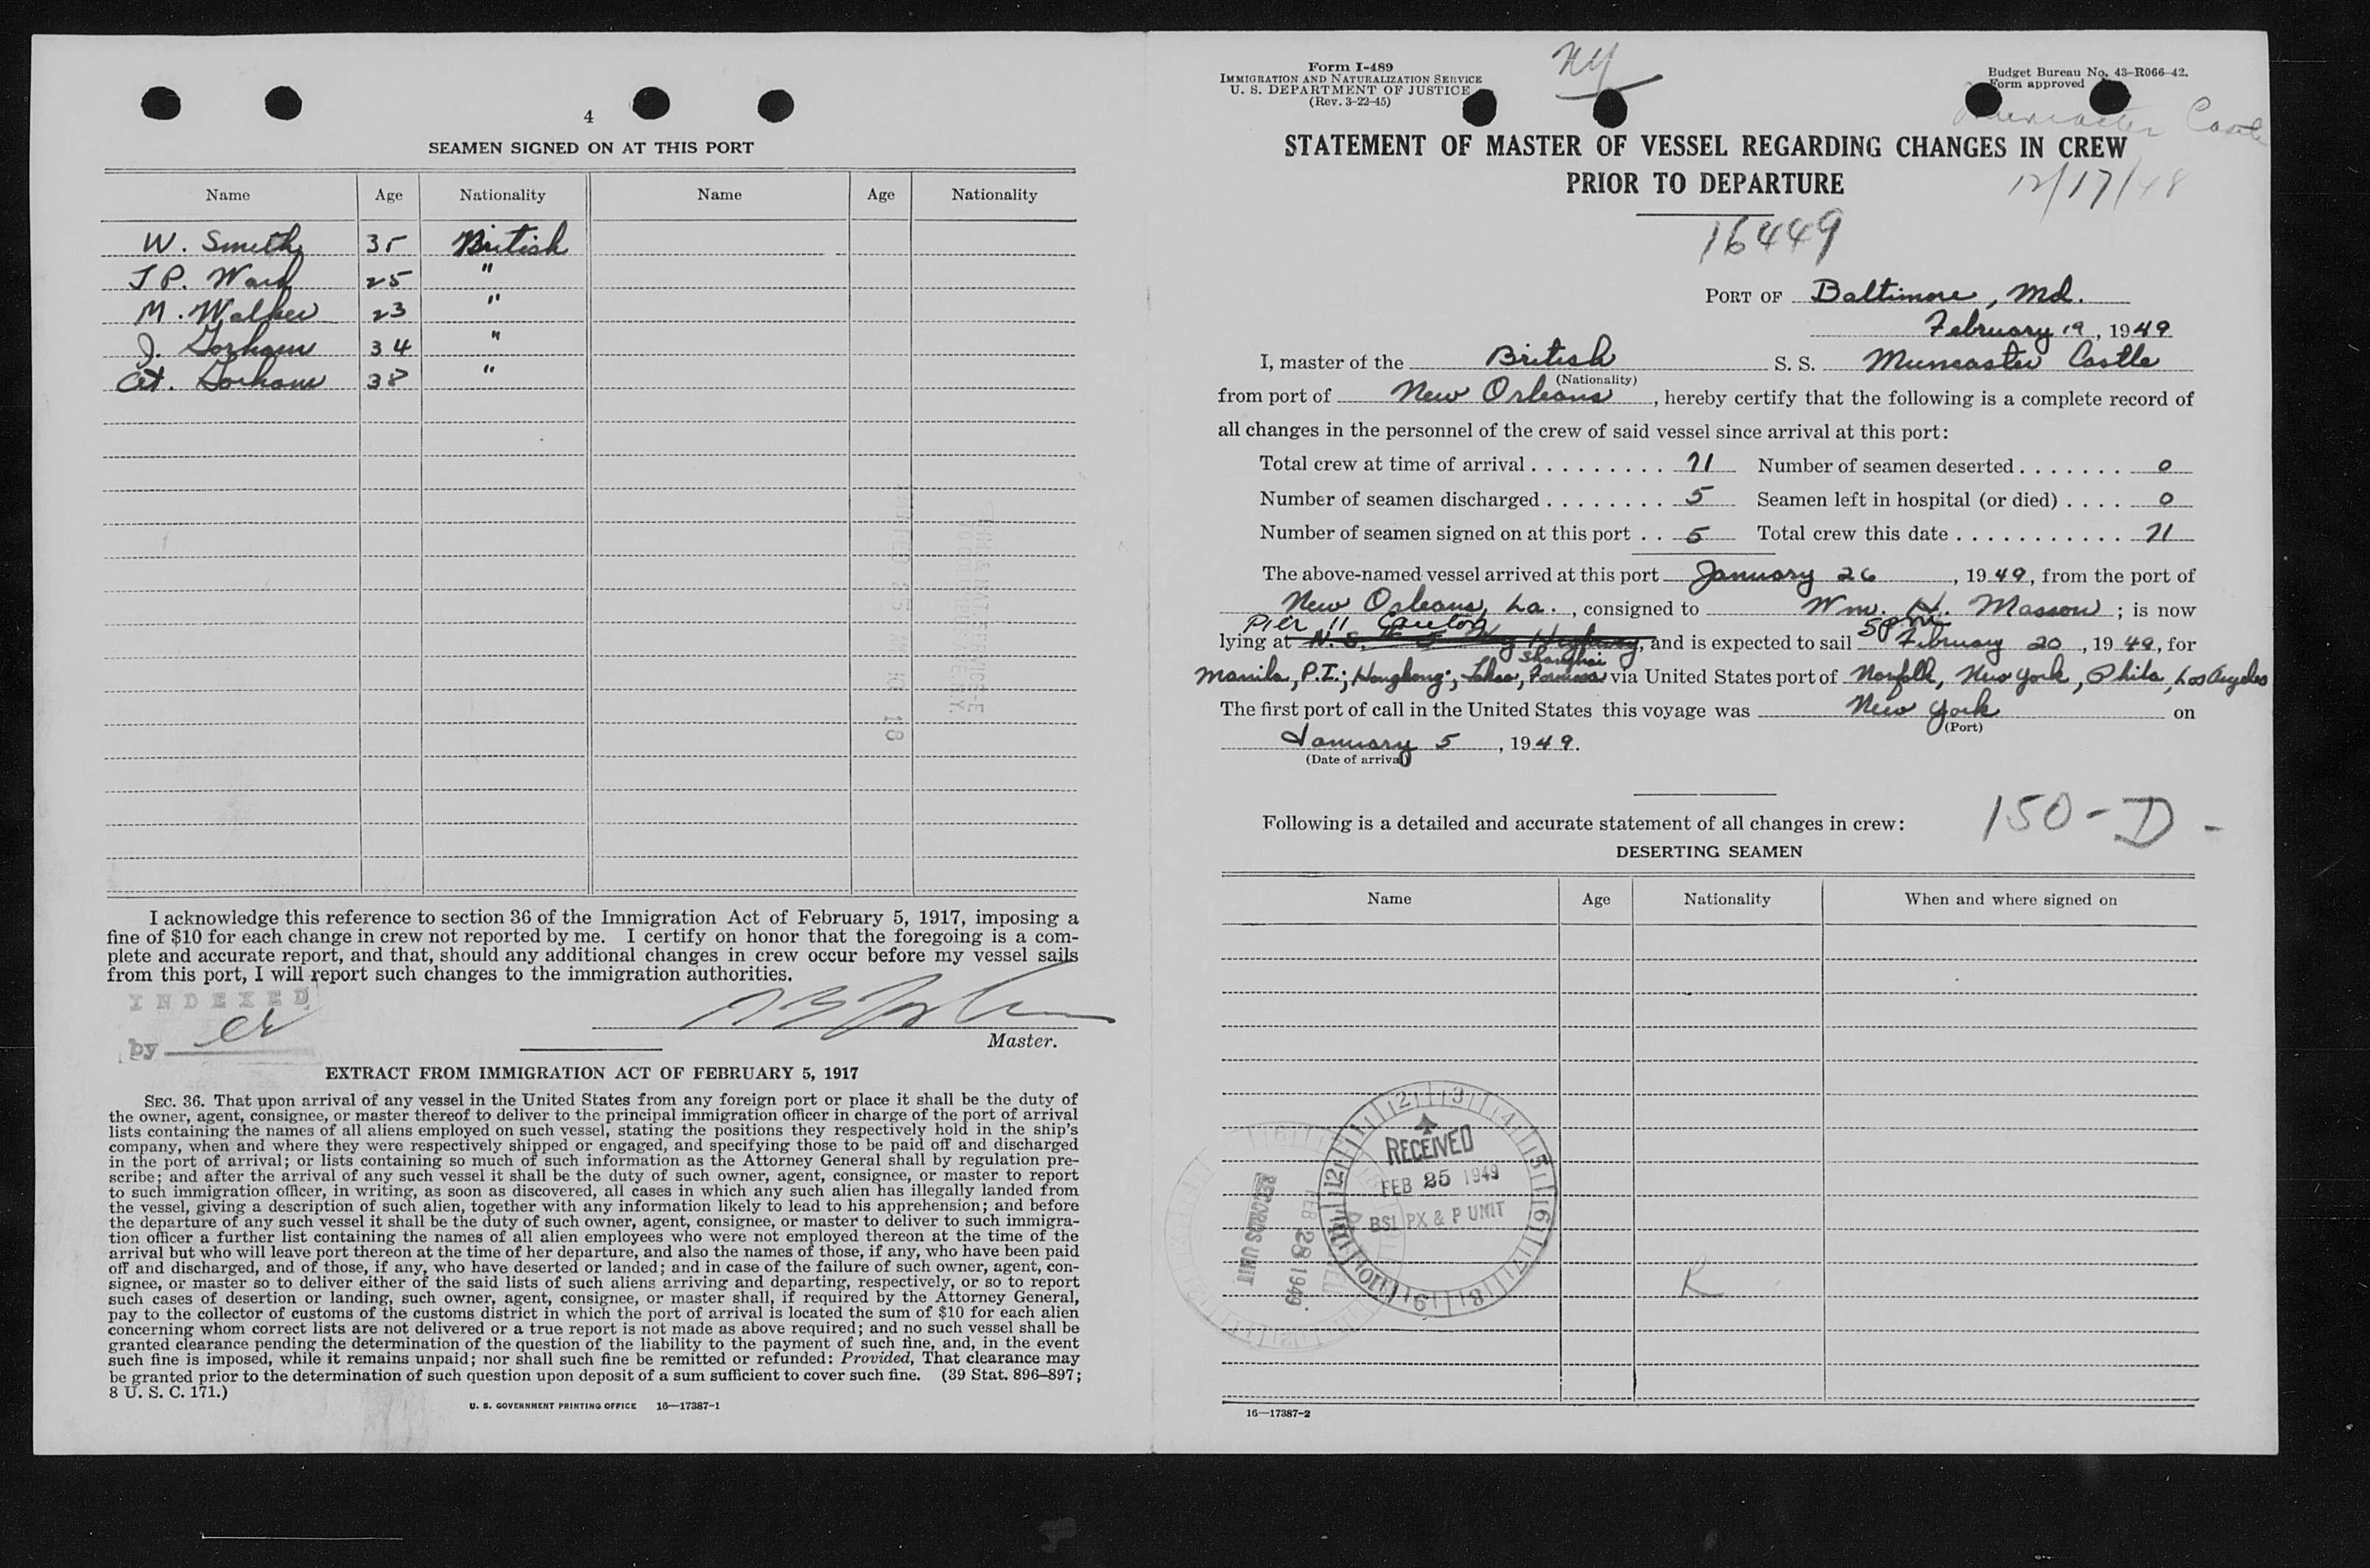 4
SEAMEN SIGNED ON AT THIS PORT
Name Age Nationality Name Age Nationality
W. Smith 35 British
J P. Ward 25 "
M. Walker 23 "
J. Gorham 34 "
Gorham 38 "
I acknowledge this reference to section 36 of the Immigration Act of February 5, 1917, imposing a
fine of $10 for each change in crew not reported by me. I certify on honor that the foregoing is a com-
plete and accurate report, and that, should any additional changes in crew occur before my vessel sails
from this port, I will report such changes to the immigration authorities.
INDEXED
by
Master.
EXTRACT FROM IMMIGRATION ACT OF FEBRUARY 5, 1917
SEC. 36. That upon arrival of any vessel in the United States from any foreign port or place it shall be the duty of
the owner, agent, consignee, or master thereof to deliver to the principal immigration officer in charge of the port of arrival
lists containing the names of all aliens employed on such vessel, stating the positions they respectively hold in the ship's
company, when and where they were respectively shipped or engaged, and specifying those to be paid off and discharged
in the port of arrival; or lists containing so much of such information as the Attorney General shall by regulation pre-
scribe; and after the arrival of any such vessel it shall be the duty of such owner, agent, consignee, or master to report
to such immigration officer, in writing, as soon as discovered, all cases in which any such alien has illegally landed from
the vessel, giving a description of such alien, together with any information likely to lead to his apprehension; and before
the departure of any such vessel it shall be the duty of such owner, agent, consignee, or master to deliver to such immigra-
tion officer a further list containing the names of all alien employees who were not employed thereon at the time of the
arrival but who will leave port thereon at the time of her departure, and also the names of those, if any, who have been paid
off and discharged, and of those, if any, who have deserted or landed; and in case of the failure of such owner, agent, con-
signee, or master so to deliver either of the said lists of such aliens arriving and departing, respectively, or so to report
such cases of desertion or landing, such owner, agent, consignee, or master shall, if required by the Attorney General,
pay to the collector of customs of the customs district in which the port of arrival is located the sum of $10 for each alien
concerning whom correct lists are not delivered or a true report is not made as above required; and no such vessel shall be
granted clearance pending the determination of the question of the liability to the payment of such fine, and, in the event
such fine is imposed, while it remains unpaid; nor shall such fine be remitted or refunded: Provided, That clearance may
be granted prior to the determination of such question upon deposit of a sum sufficient to cover such fine. (39 Stat. 896–897;
8 U. S. C. 171.)
U. S. GOVERNMENT PRINTING OFFICE 16—17387-1
Form I-489
IMMIGRATION AND NATURALIZATION SERVICE
U. S. DEPARTMENT OF JUSTICE
(Rev. 3-22-45)
NY
Budget Bureau No. 43-R066-42.
Form approved
Muncaster Castle
STATEMENT OF MASTER OF VESSEL REGARDING CHANGES IN CREW
PRIOR TO DEPARTURE
12/17/48
16449
PORT OF Baltimore, Md.
February 19, 1949
I, master of the British S. S. Muncaster Castle
(Nationality)
from port of New Orleans, hereby certify that the following is a complete record of
all changes in the personnel of the crew of said vessel since arrival at this port:
Total crew at time of arrival . . . . . . . . . 71 Number of seamen deserted . . . . . . . 0
Number of seamen discharged . . . . . . . . 5 Seamen left in hospital (or died) . . . . 0
Number of seamen signed on at this port . . 5 Total crew this date . . . . . . . . . . . 71
The above-named vessel arrived at this port January 26, 1949, from the port of
New Orleans, La., consigned to Wm. H. Masson; is now
Pier 11 Canton 5 pm
lying at and is expected to sail February 20, 1949, for
Shanghai
Manila, P.I.; Hongkong; Formosa via United States port of Norfolk, New York, Phila, Los Angeles
The first port of call in the United States this voyage was New York on
(Port)
January 5, 1949.
(Date of arrival)
Following is a detailed and accurate statement of all changes in crew: 150-D-
DESERTING SEAMEN
Name Age Nationality When and where signed on
RECEIVED
FEB 25 1949
BSI PX & P UNIT
RECORDS UNIT
FEB 28 1949
R
16—17387-2